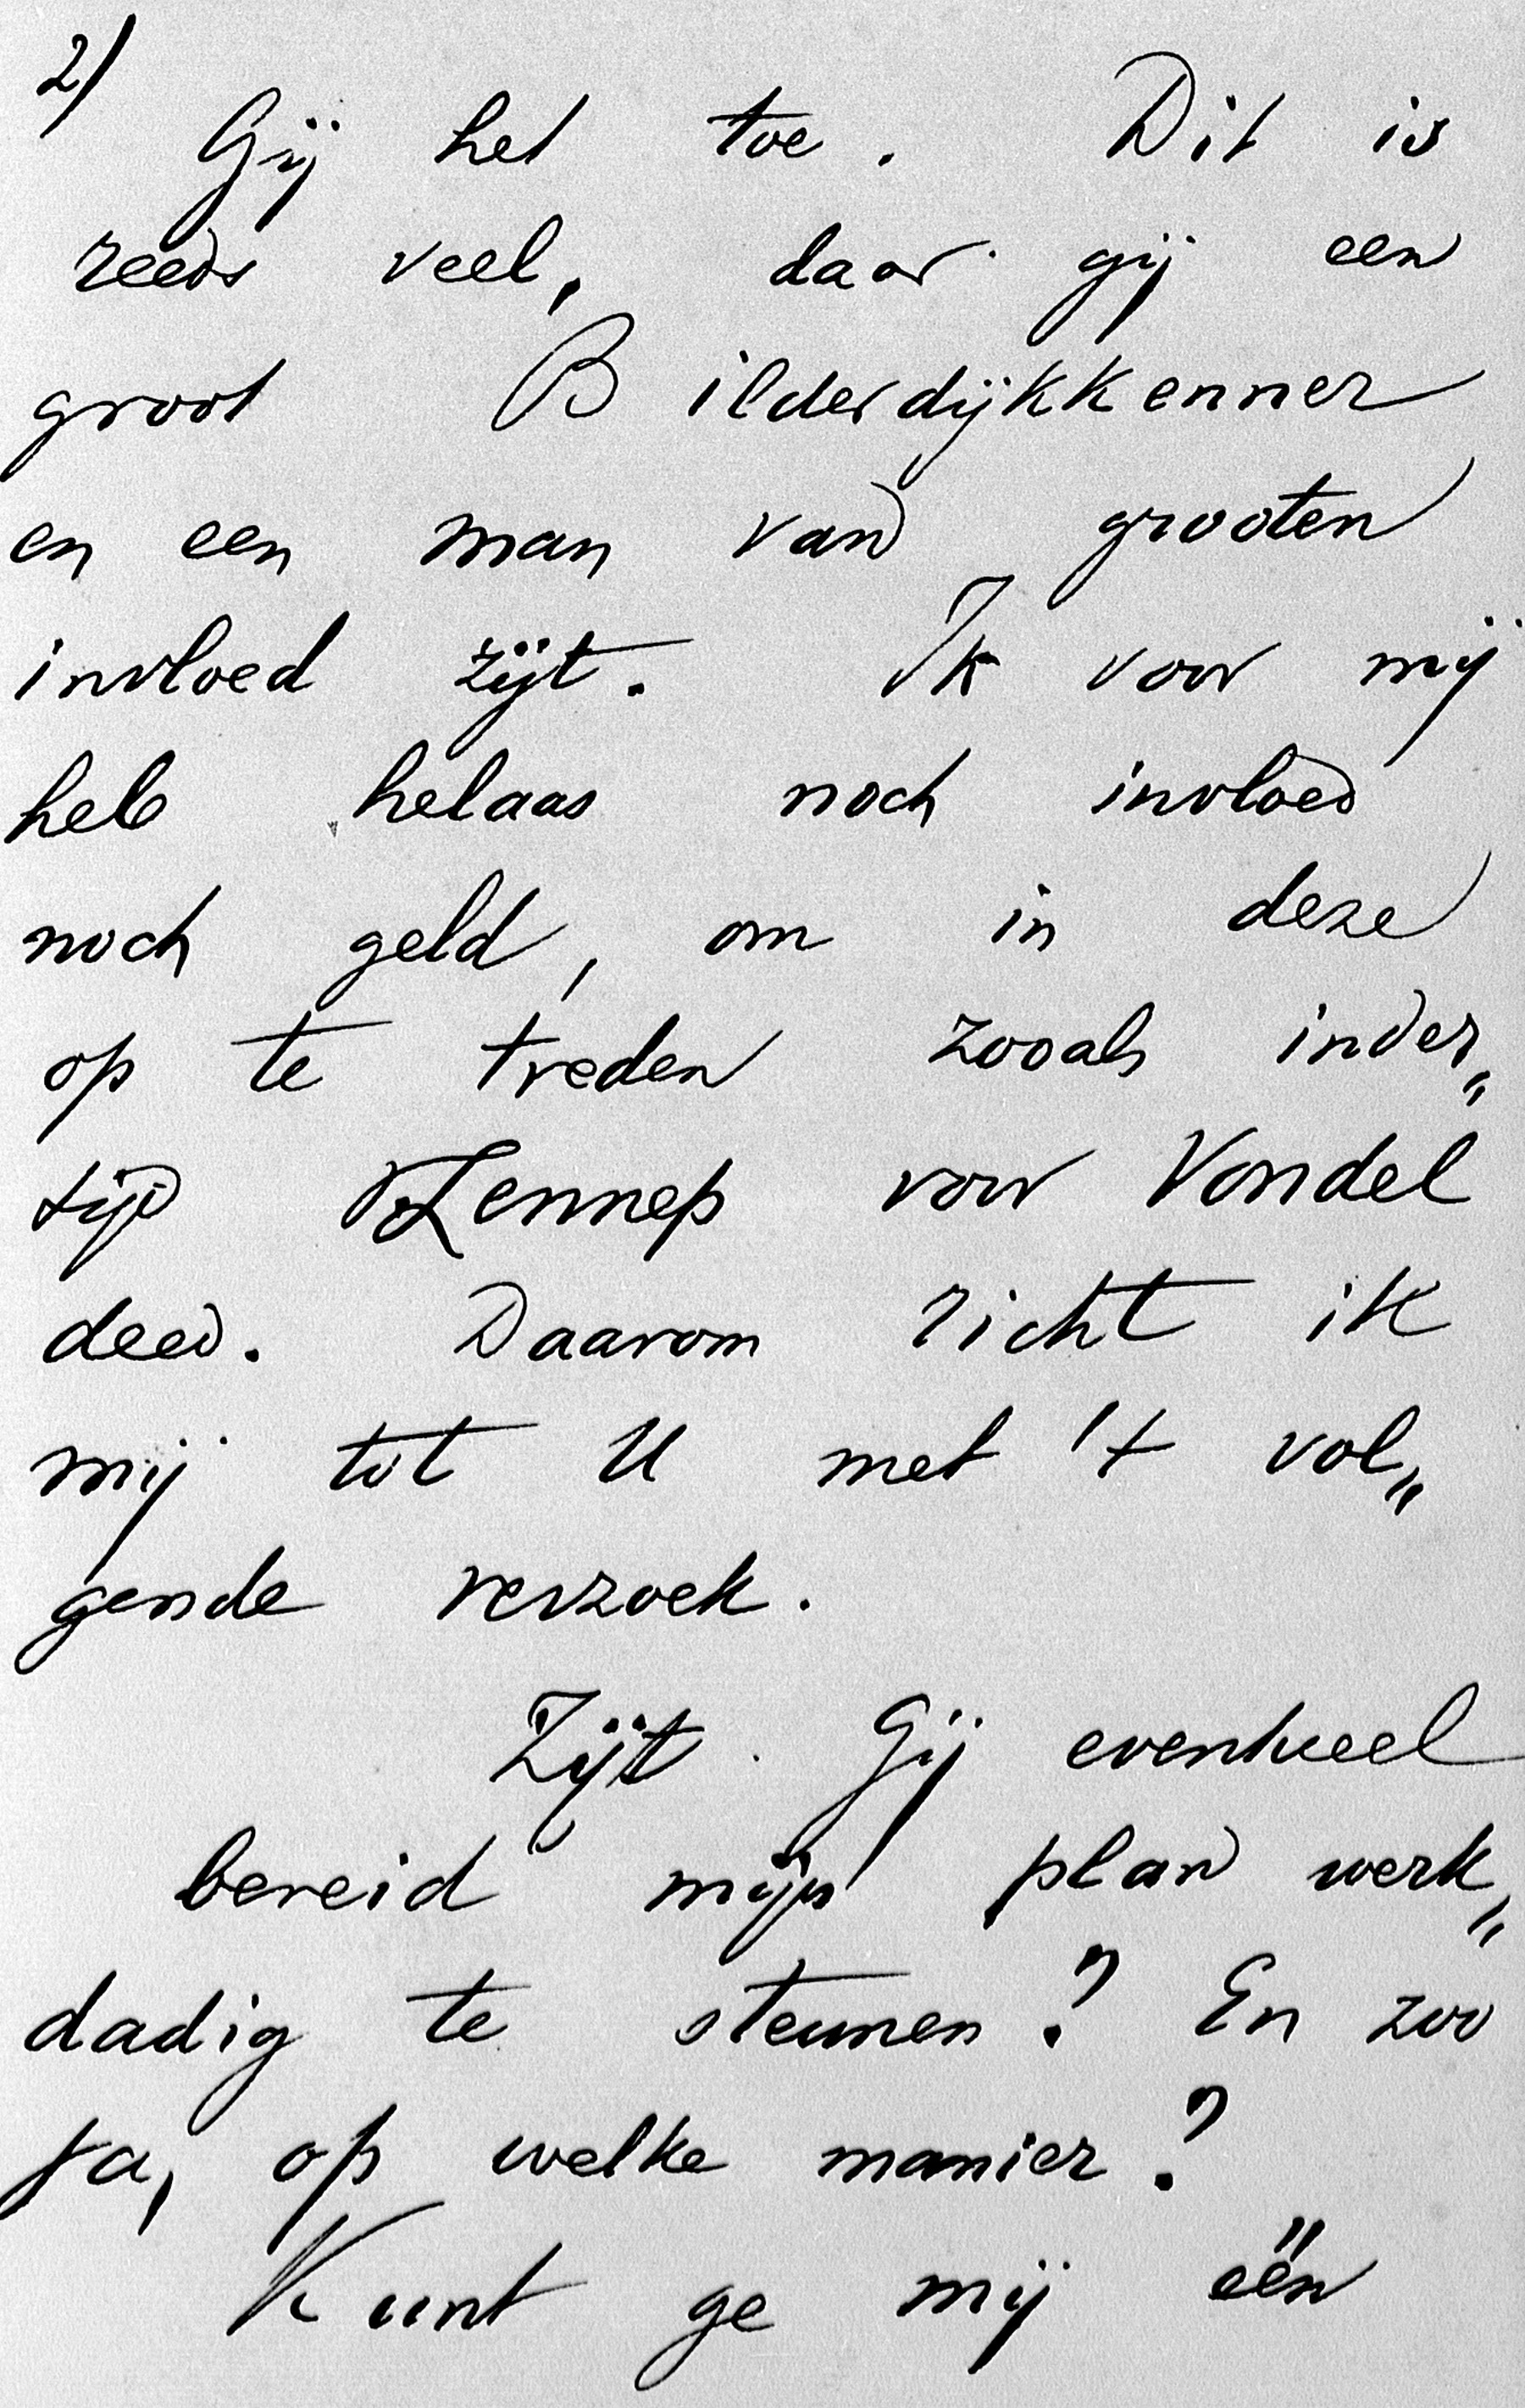 2)
Gij het toe. Dit is
reeds veel, daar gij een
groot Bilderdijkkenner
en een man van grooten
invloed zijt. Ik voor mij
heb helaas noch invloed
noch geld, om in deze
op te treden zooals inder„
tijd v. Lennep voor Vondel
deed. Daarom richt ik
mij tot U met 't vol„
gende verzoek.
Zijt Gij eventueel
bereid mijn plan werk„
dadig te steunen? En zoo
ja, op welke manier?
Kunt ge mij één